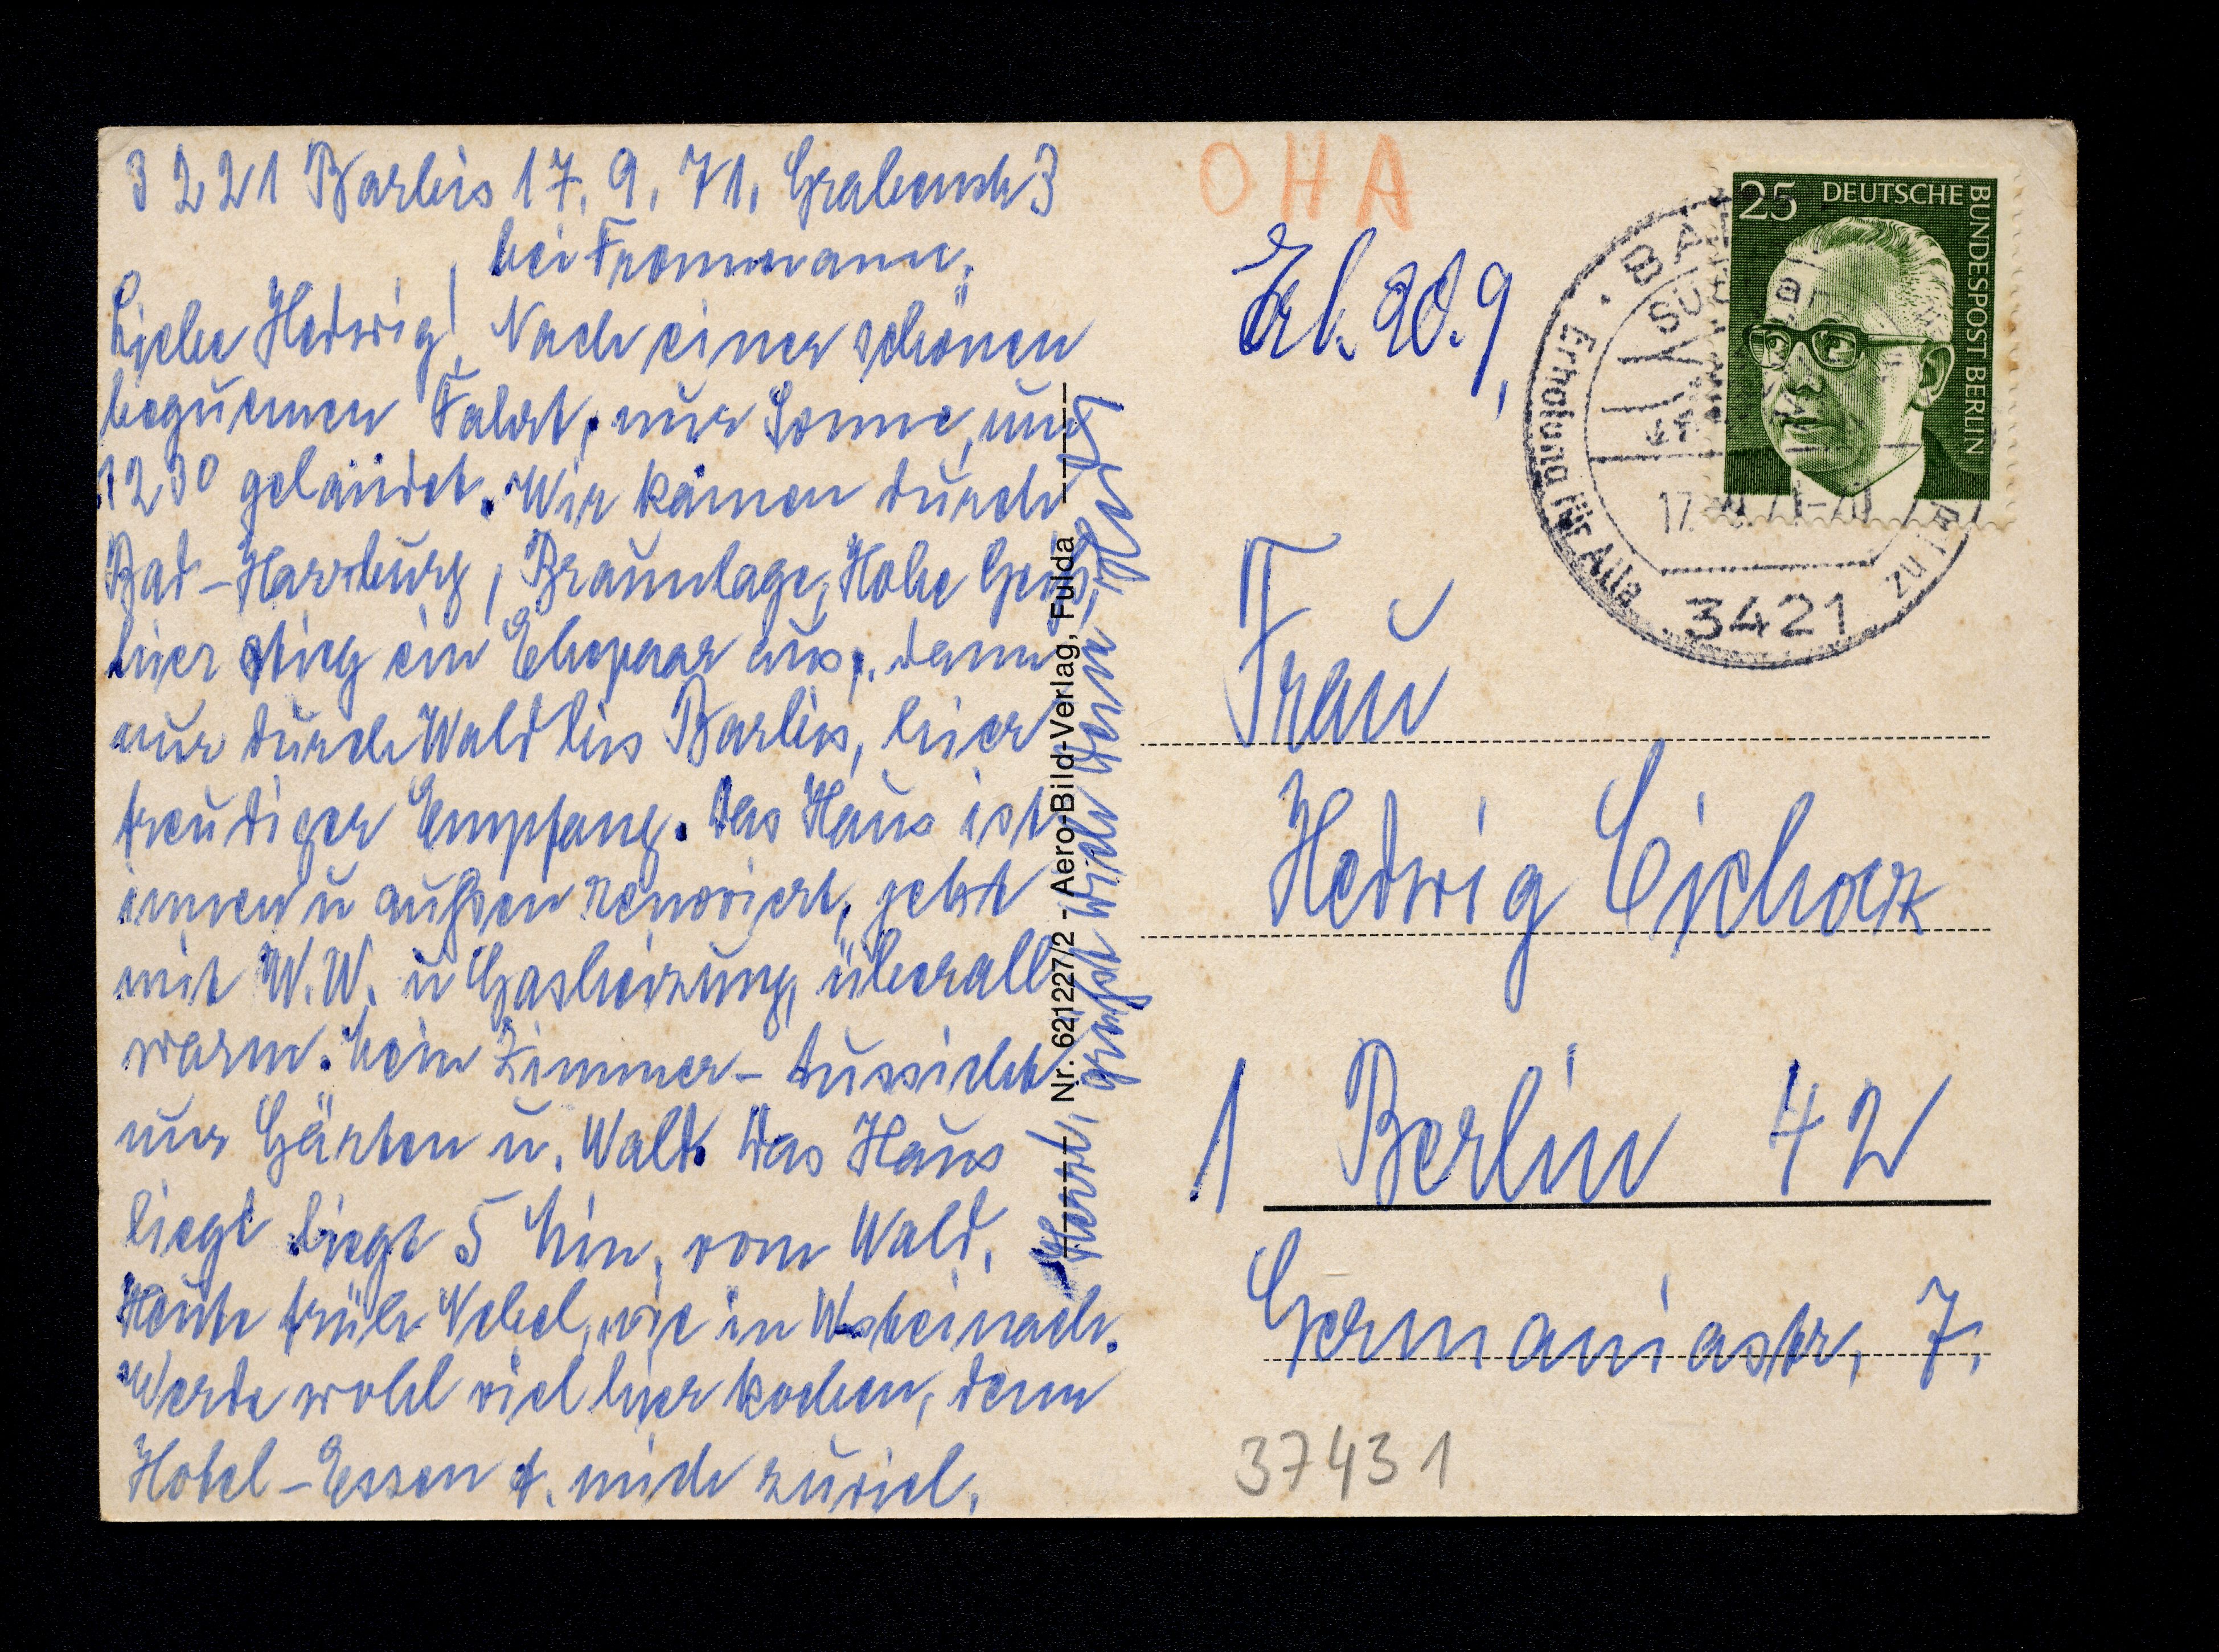 3221 Barbis 17. 9. 71. Grabenstr 3
bei Frommann.
Liebe Hedwig! Nach einer schönen
bequemen Fahrt, nur Sonne, um
1230 gelandet. Wir kamen durch
Bad-Harzburg, Braunlage, Hohe Geiß,
hier stieg ein Ehepaar aus, dann
nur durch Wald bis Barbis, hier
freudiger Empfang. Das Haus ist
innen u außen renoviert, jetzt
mit W.W. u Gasheizung, überall
warm. Mein Zimmer-Aussicht
nur Gärten u. Wald. Das Haus
liegt liegt 5 Min. vom Wald.
Heute früh Nebel, wie in
Werde wohl viel hier kochen, denn
Hotel-Essen f. mich zuviel.
grüßt Dich Deine
Nr. 621227/2 - Aero-Bild-Verlag, Fulda
OHA
Erh. 20. 9.
25 DEUTSCHE BUNDESPOST BERLIN
Erholung für Alle
3421
Frau
Hedwig Eichorz
1 Berlin 42
Germaniastr. 7.
37431